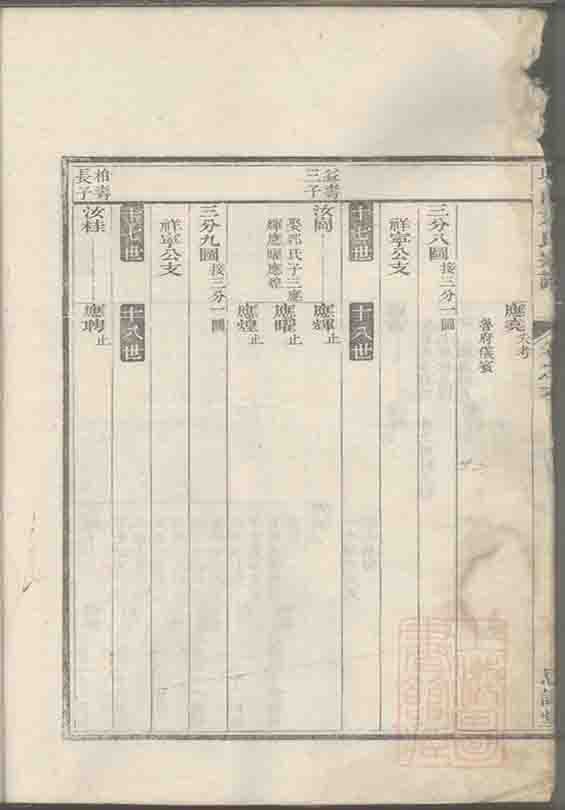 應亮 失考
魯府儀賓
三分八圖 接三分一圖
祥寧公支
十七世
十八世
益壽三子
汝尚
應輝 止
娶郭氏子三應
輝應曜應煌
應曜 止
應煌 止
三分九圖 接三分一圖
祥寧公支
十七世
十八世
柏壽長子
汝桂
應聘 止